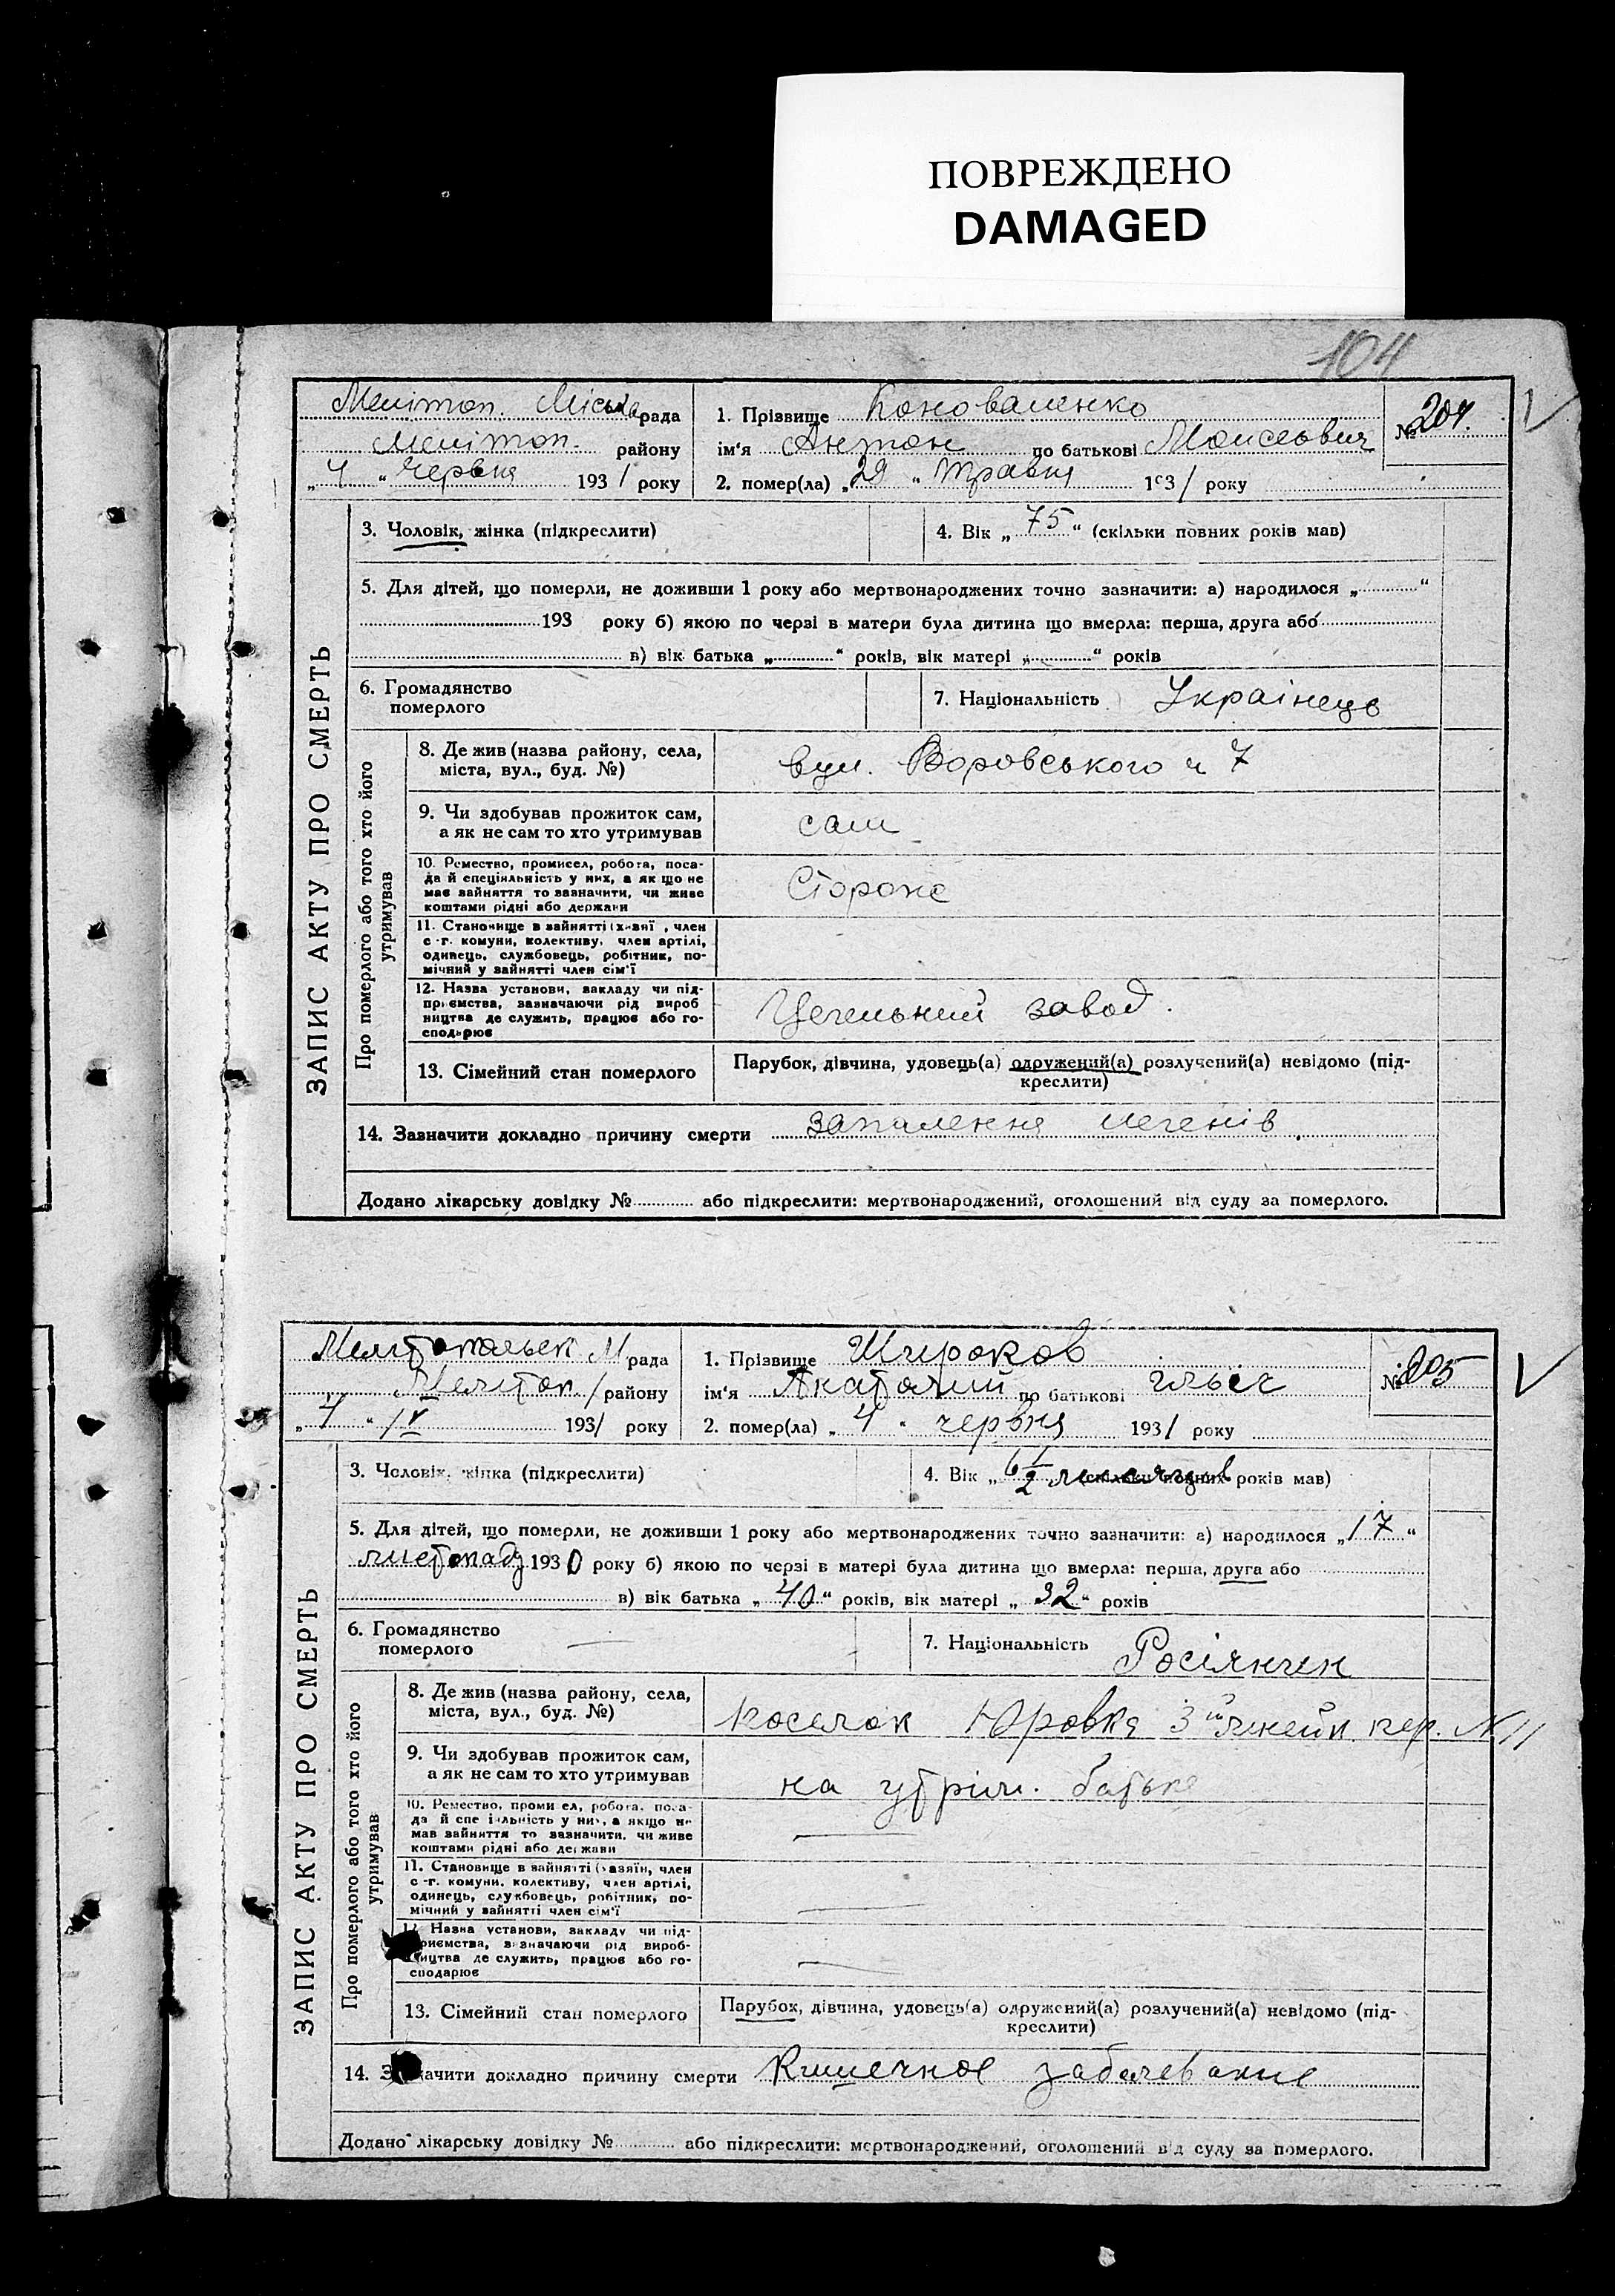 ПОВРЕЖДЕНО
DAMAGED
104
Мелітоп. Міська рада
Мелітоп. району
„4“ Червня 1931 року
1. Прізвище Коноваленко
ім‘я Антон по батькові Моисеович
2. помер(ла) „29“ Травня 1931 року
№ 204.
3. Чоловік, жінка (підкреслити)
4. Вік „75“ (скільки повних років мав)
5. Для дітей, що померли, не доживши 1 року або мертвонароджених точно зазначити: а) народилося „ “
193 року б) якою по черзі в матери була дитина що вмерла: перша, друга або
в) вік батька „ “ років, вік матері „ “ років
6. Громадянство
померлого
7. Національність Українець
ЗАПИС АКТУ ПРО СМЕРТЬ
Про померлого або того хто його
утримував
8. Де жив (назва району, села,
міста, вул., буд. №)
вул. Воровського ч 7
9. Чи здобував прожиток сам,
а як не сам то хто утримував
сам
10. Ремество, промисел, робота, поса-
да й спеціяльність у них, а як що не
має зайняття то зазначити, чи живе
коштами рідні або держави
Сторож
11. Становище в зайнятті (хазяї, член
с.-г. комуни, колективу, член артілі,
одинець, службовець, робітник, по-
мічний у зайнятті член сім‘ї
12. Назва установи, закладу чи під-
приємства, зазначаючи рід вироб
ництва де служить, працює або го-
сподарює
Цегельний завод.
13. Сімейний стан померлого
Парубок, дівчина, удовець(а) одружений(а) розлучений(а) невідомо (під-
креслити)
14. Зазначити докладно причину смерти запалення легенів.
Додано лікарську довідку № або підкреслити: мертвонароджений, оголошений від суду за померлого.
Мелітопольск М рада
Мелітоп. району
„4“ IV 1931 року
1. Прізвище Широков
ім‘я Анатолий по батькові Ильич
2. помер(ла) „4“ червня 1931 року
№ 205
3. Чоловік, жінка (підкреслити)
4. Вік „6 1/2 месяцев (скільки повних років мав)
5. Для дітей, що померли, не доживши 1 року або мертвонароджених точно зазначити: а) народилося „17“
листопаду 1930 року б) якою по черзі в матері була дитина що вмерла: перша, друга або
в) вік батька „40“ років, вік матері „32“ років
6. Громадянство
померлого
7. Національність Росіянин
ЗАПИС АКТУ ПРО СМЕРТЬ
Про померлого або того хто його
утримував
8. Де жив (назва району, села,
міста, вул., буд. №)
поселок Юровка 3й линейн. пер. № 11
9. Чи здобував прожиток сам,
а як не сам то хто утримував
на утрим. батька
10. Ремество, промисел, робота, поса-
да й спеціяльність у них, а якщо не
мав зайняття то зазначити, чи живе
коштами рідні або держави
11. Становище в зайнятті (хазяїн, член
с.-г. комуни, колективу, член артілі,
одинець, службовець, робітник, по-
мічний у зайнятті член сім‘ї
12. Назва установи, закладу чи під-
приємства, зазначаючи рід вироб-
ництва де служить, працює або го-
сподарює
13. Сімейний стан померлого
Парубок, дівчина, удовець(а) одружений(а) розлучений(а) невідомо (під-
креслити)
14. Зазначити докладно причину смерти Кишечное заболевание
Додано лікарську довідку № або підкреслити: мертвонароджений, оголошений від суду за померлого.